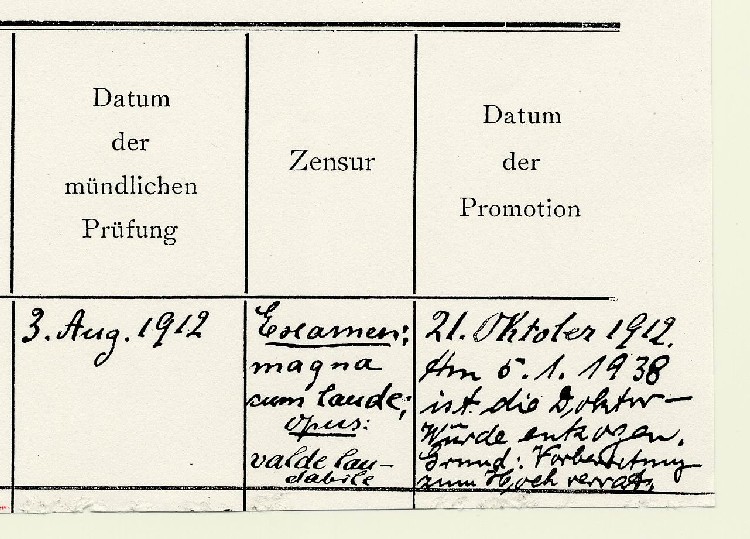 Datum
der
mündlichen
Prüfung
Zensur
Datum
der
Promotion
3. Aug. 1912
Examen:
magna
cum laude;
opus:
valde lau-
dabile
21. Oktober 1912.
Am 5.1.1938
ist die Doktor-
Würde entzogen.
Grund: Vorbereitung
zum Hochverrat.